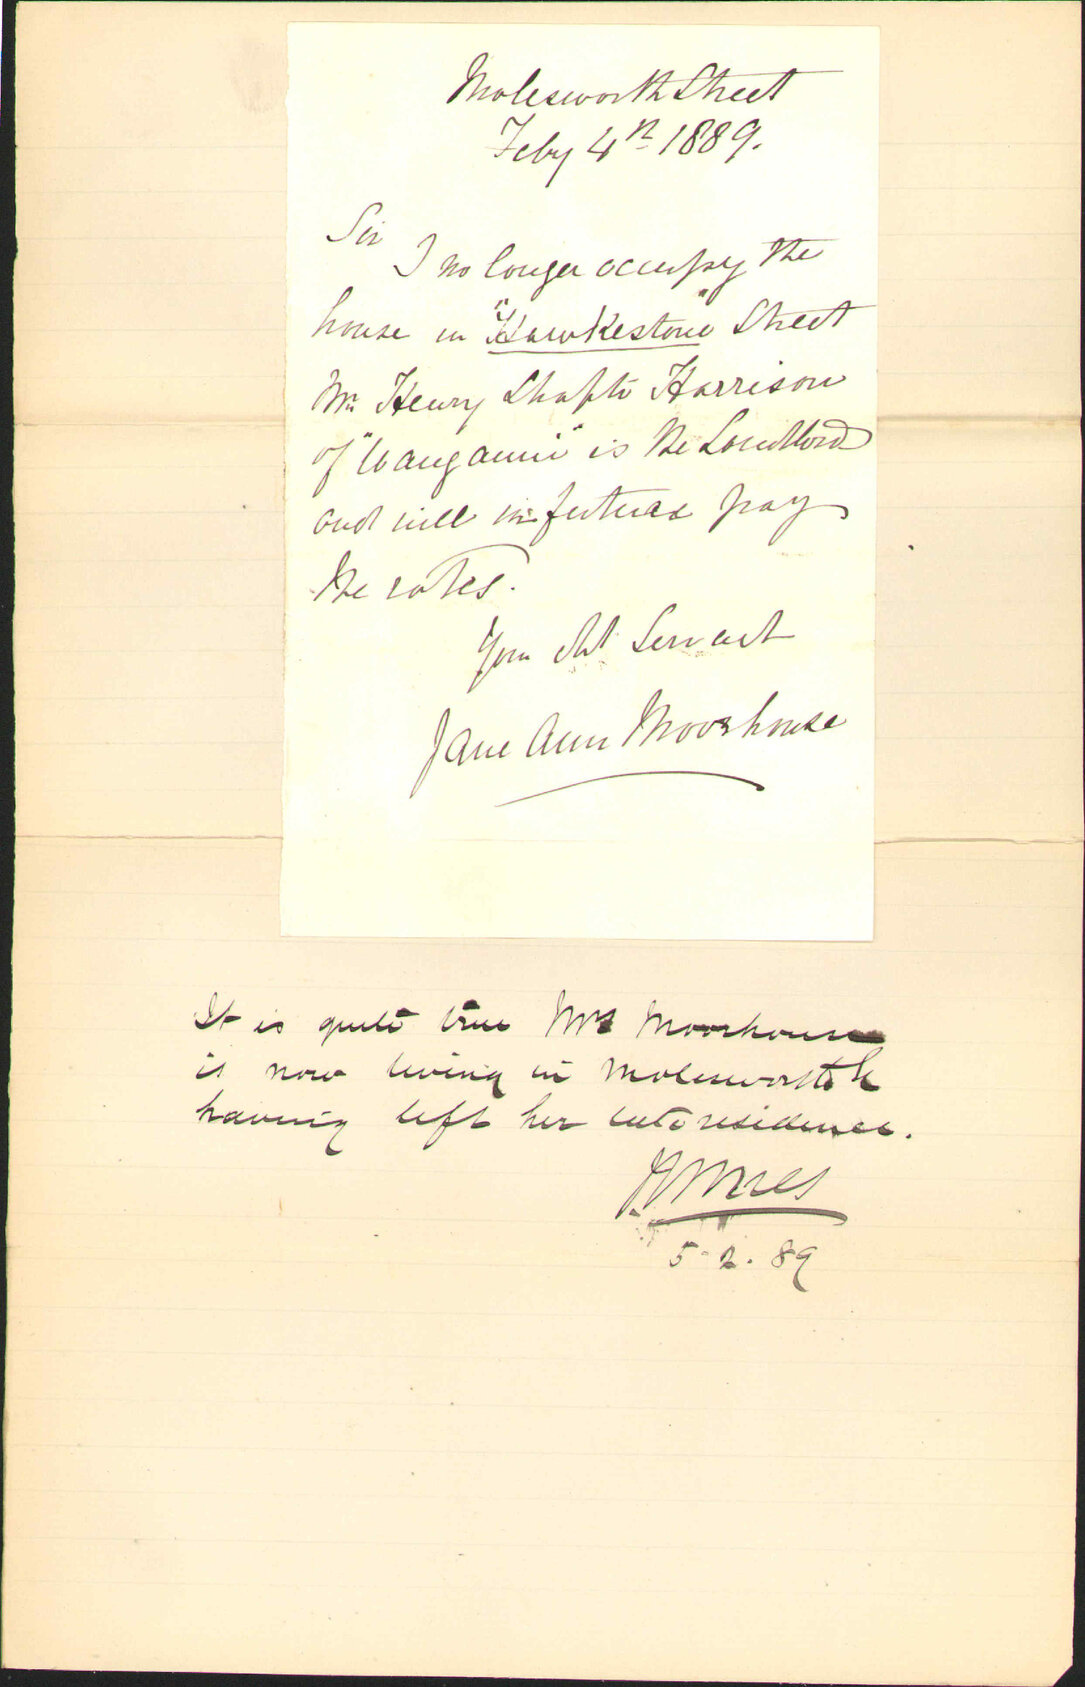 Molesworth Street
Feby 4th 1889.
Sir
I no longer occupy the
house in "Hawkestone" Street
Mr Henry Shafto Harrison
of "Wanganui" is the Landlord
and will in future pay
the rates.
Your obt Servant
Jane Ann Moorhouse
It is quite true Mrs Moorhouse
is now living in Molesworth St
having left her late residence.
5-2.89